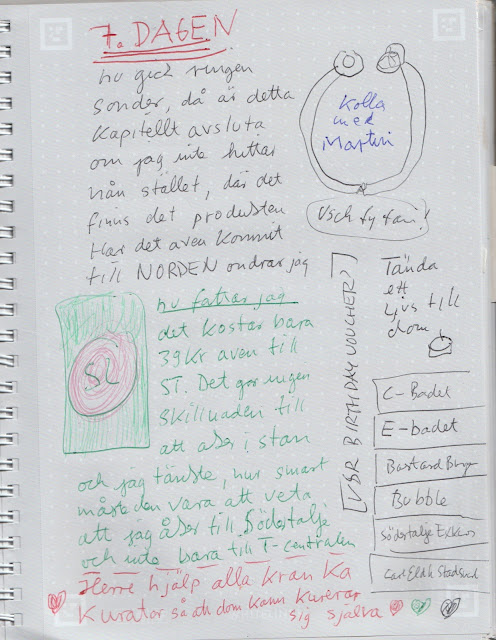 7. DAGEN
nu gick ringen
sonder, då är detta
Kapitellt avsluta
om jag inte hittar
nån stället, där det
finns det produkten
Har det aven kommit
till NORDEN ondrar jag
Kolla
med
Martin
Usch fy fan!
Tända
ett
ljus till
dom
VBR BIRTHDAY VOUCHER?
nu fattar jag
det kostar bara
39kr aven till
ST. Det gor ingen
skillnaden till
att aker i stan
SL
och jag tänkte, hur smart
måste den vara att veta
att jag åker till Södertalje
och inte bara till T-centralen
C-Badet
E-badet
Bastard Burger
Bubble
Södertalje
Herre hjälp alla kran ka
Kurator så att dom kann kurerar
sig själva